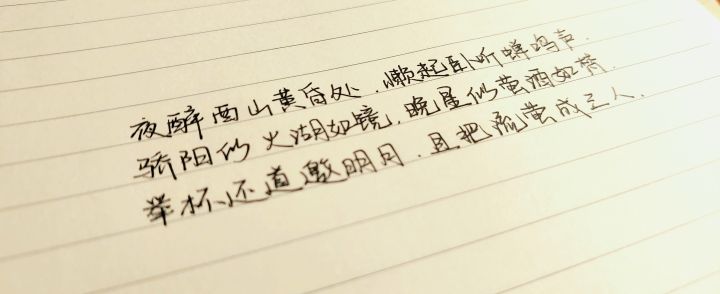 夜醉西山黄昏处,懒起卧听蝉鸣声.
骄阳似火湖如镜,晚星似萤酒如
举杯还道邀明月,且把流萤成三人.